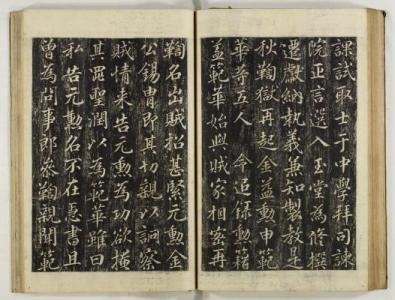 課試取士于中學拜司諫
院正言選入玉堂為修撰
遷獻納執義兼知製教是
秋鞫獄再起金益勳申範
華等五人 今追錄勳籍
益範華始與賊家相密再
鞫名出賊招甚緊元勳金
公錫冑即其切親以詗察
賊情來告元勳為功欲掩
其罪聖潤以為範華雖曰
私告元勳名不在告書且
曾為問事郎參鞫親聞範